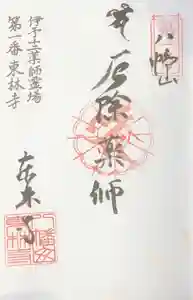 八幡山
石除薬師
伊予十二薬師霊場
第一番東林寺
東林寺